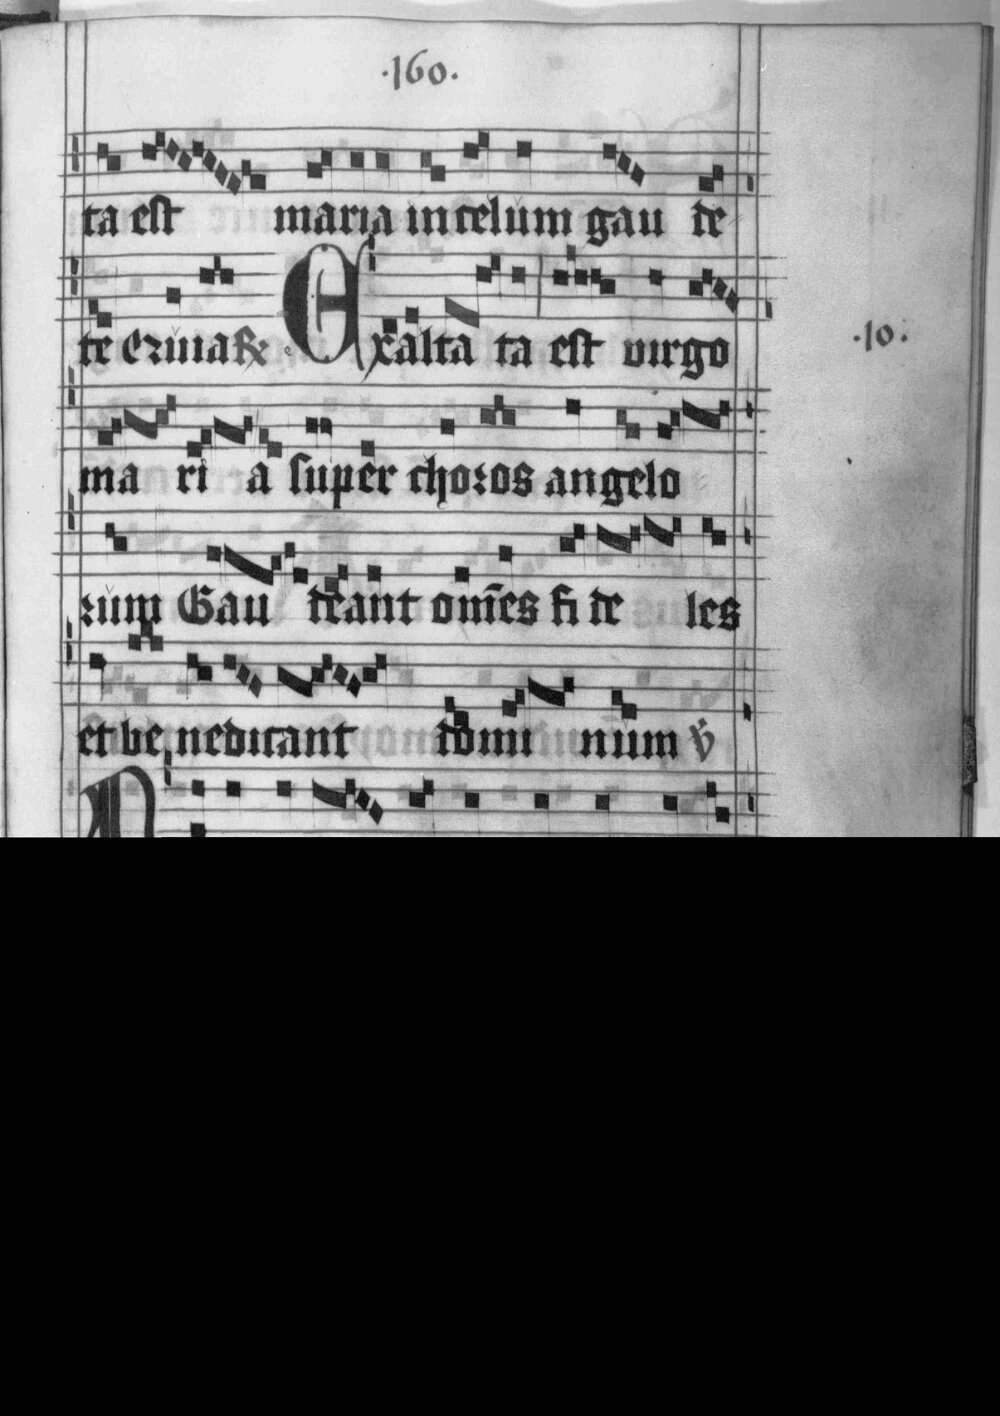 ·160·
ta est maria in celum gau de
te Eruia℟ Exalta ta est virgo
·10·
ma ri a super choꝛos angelo
ꝛum Gau deant om̄es fi de les
et be nedicant domi num ℣